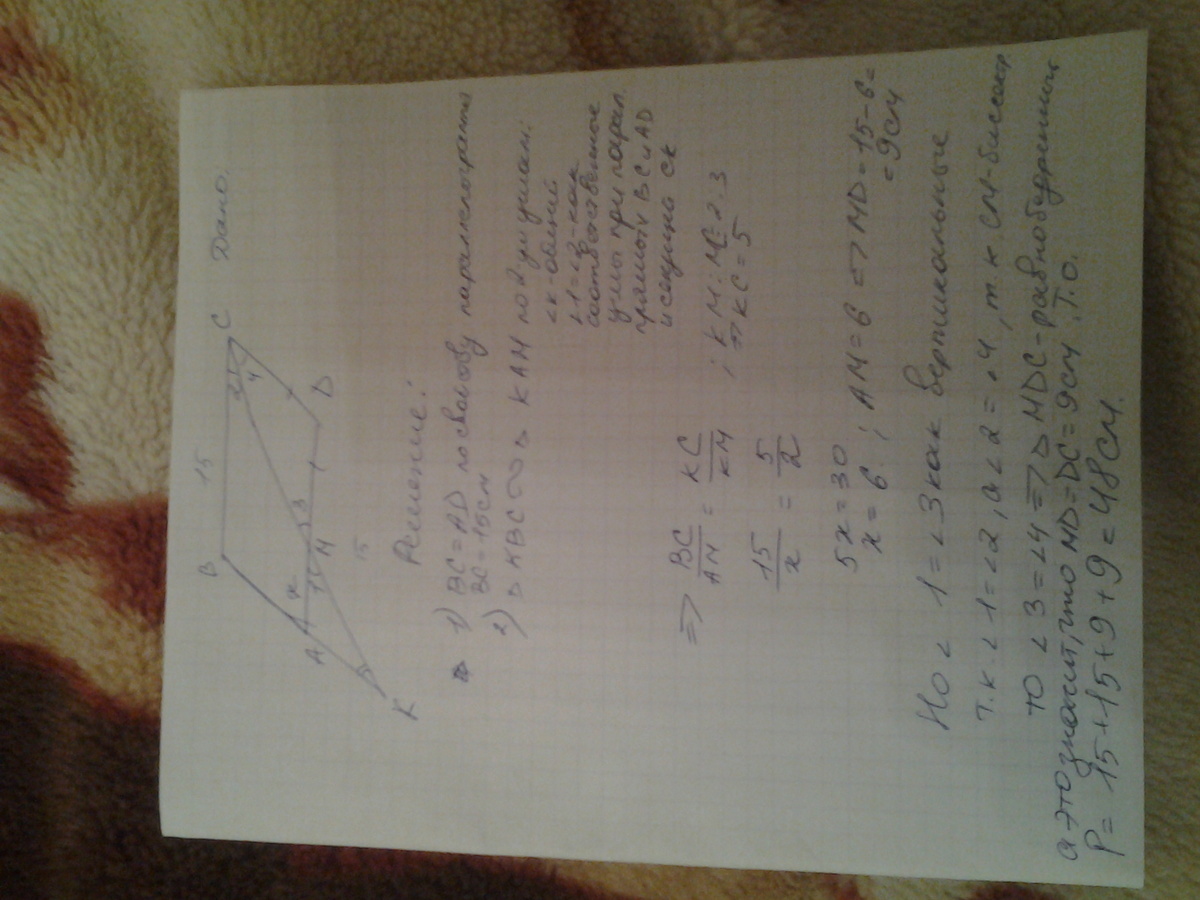 Дано:
B 15 C
2
4
A x 1 3
M D
15
K
Решение:
1) BC = AD по свойству параллелограмма
BC = 15см
2) △ KBC ∞ △ KAM по 2-ум углам:
∠K-общий
∠1=∠2-как
соответственные
углы при парал.
прямых BC и AD
и секущей CK
=> BC/AM = KC/KM ; KM:MC=2:3
=> KC=5
15/x = 5/2
5x=30
x=6 ; AM=6 => MD=15-6=
=9см
Но ∠1=∠3 как вертикальные
т.к. ∠1=∠2, а ∠2=∠4, т.к CM-биссектр
то ∠3=∠4 => △ MDC-равнобедренный
а это значит, что MD=DC=9см. Т.о.
P= 15+15+9+9=48см.